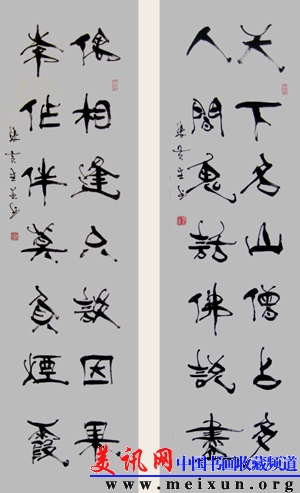 天下名山僧占多
人間鬼話佛說盡
偶相逢只談因果
常作伴莫負煙霞
美讯网 中国书画收藏频道
www.meixun.org